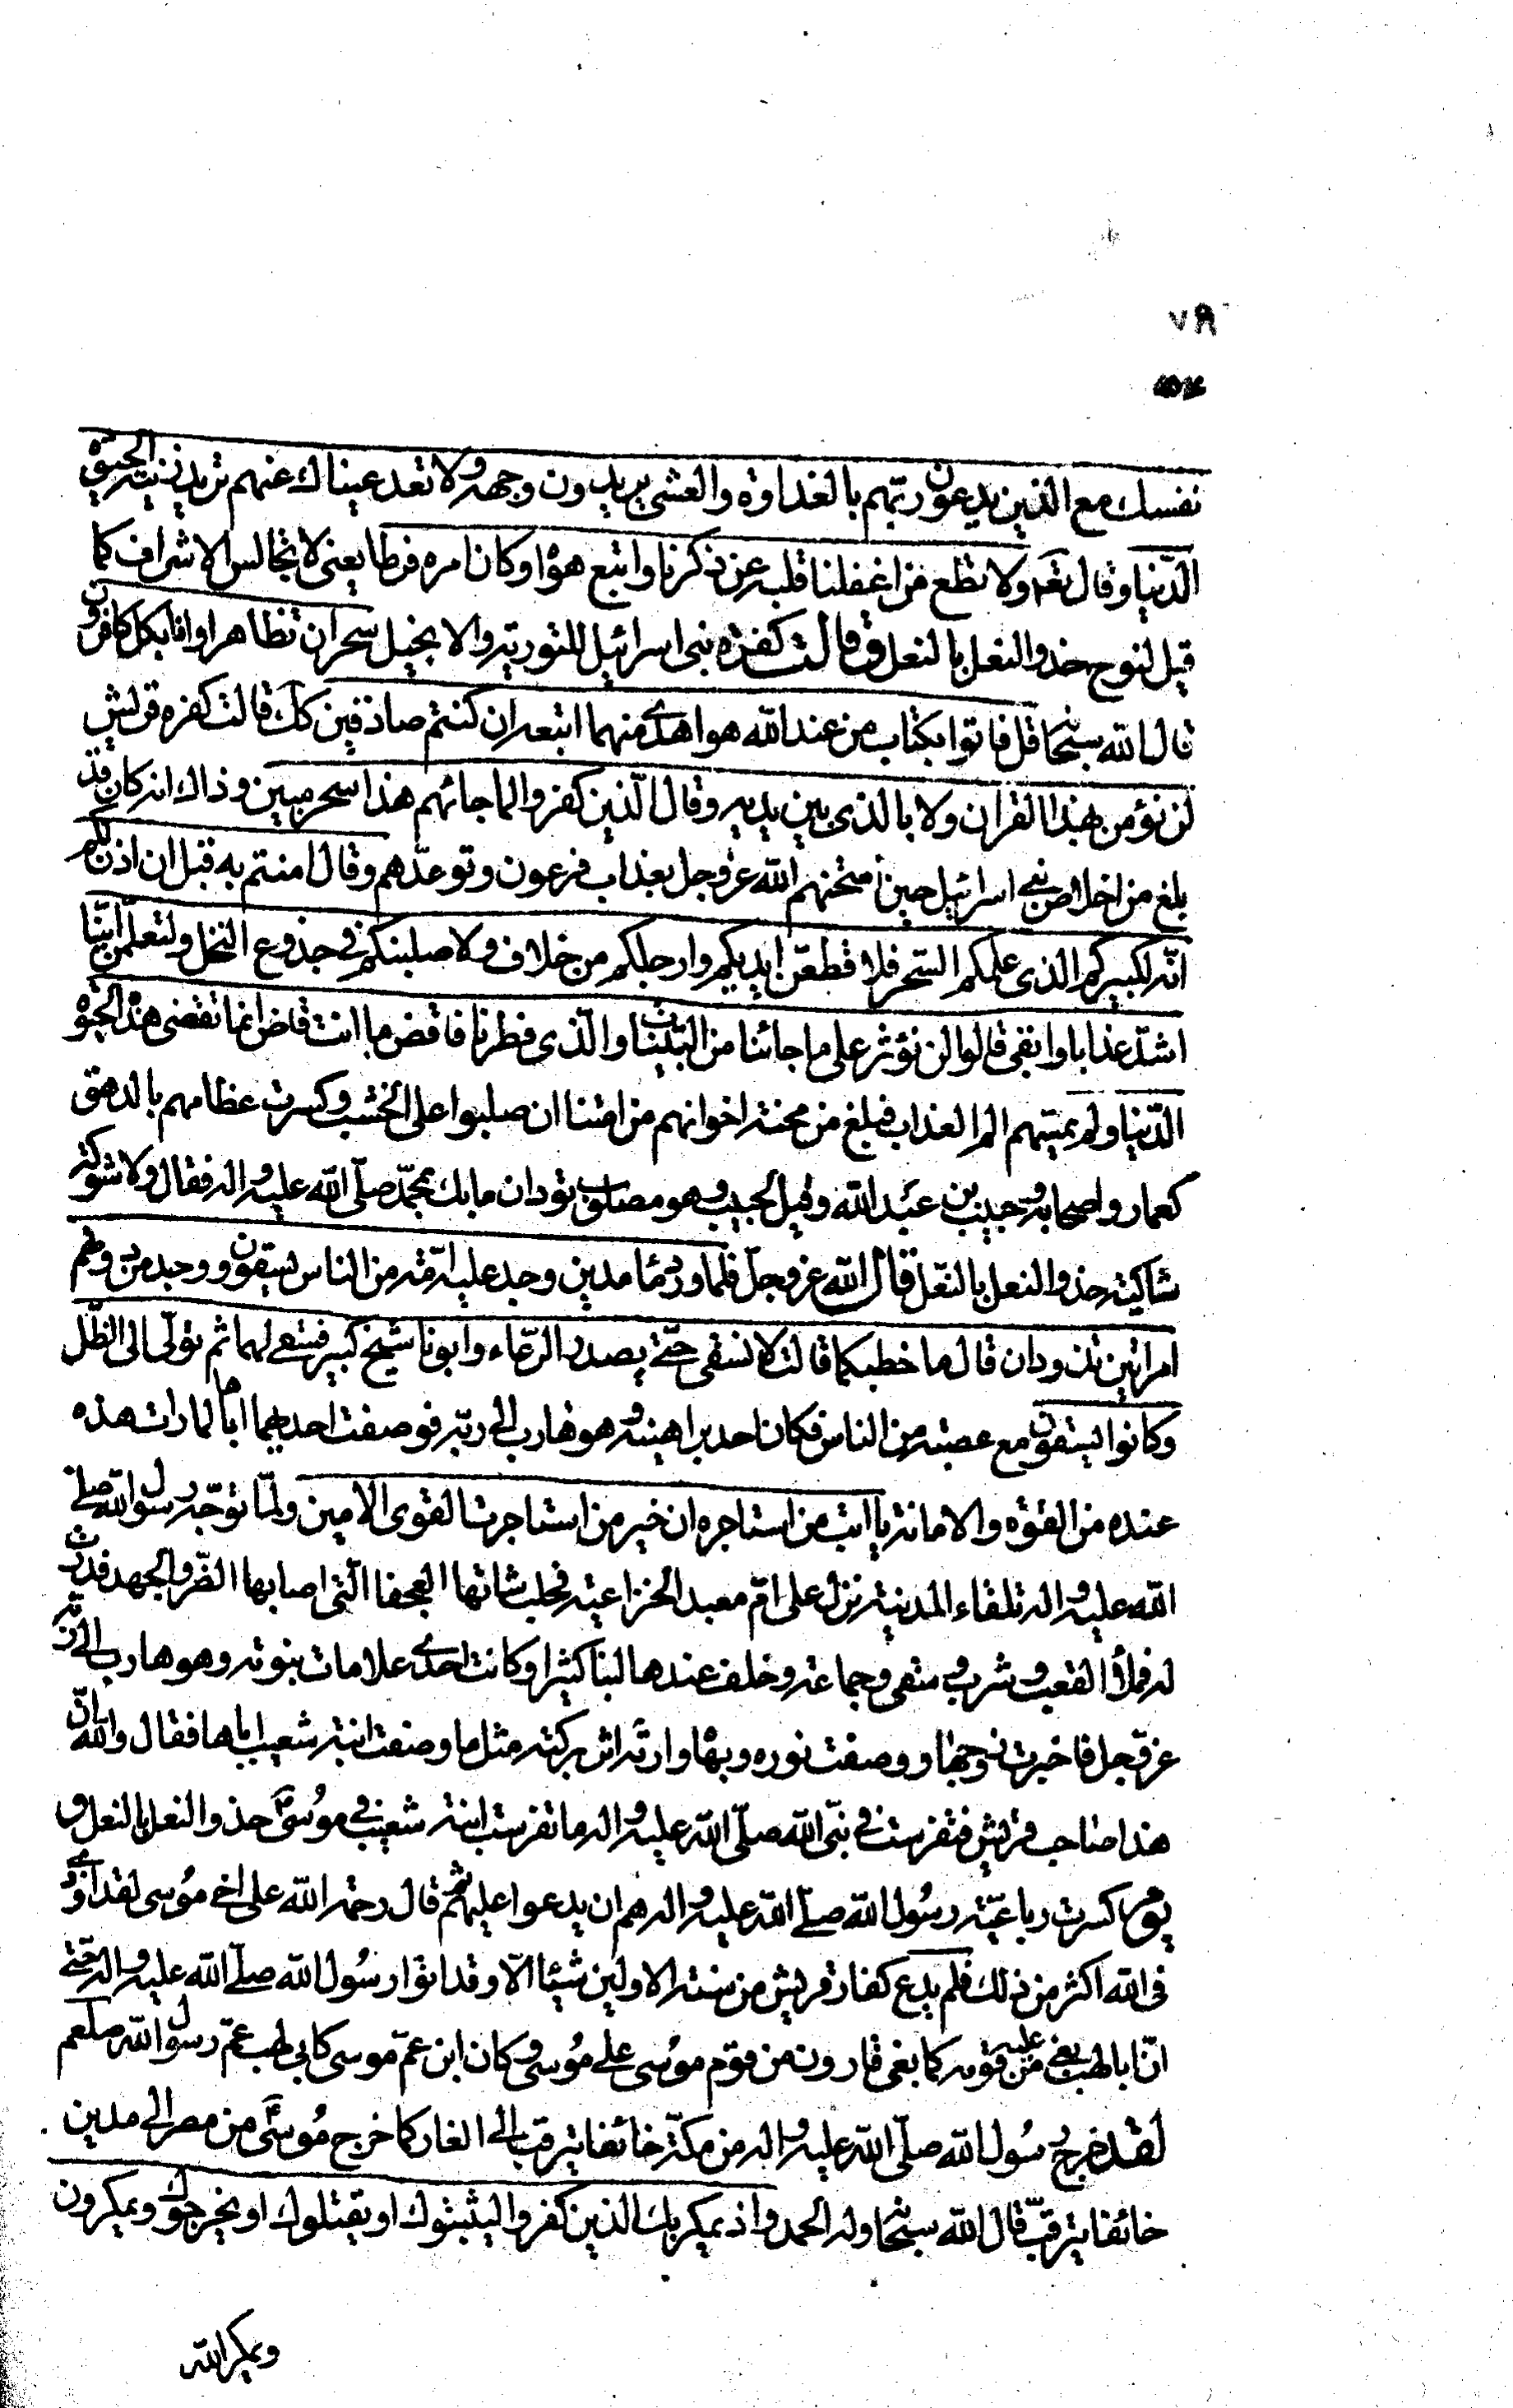 ٧٨
نفسك مع الذين يدعون ربّهم بالغداوة والعشى يريدون وجهه ولا تعد عيناك عنهم تريد زينة الحيوة
الدّنيا وقال تعَـ ولا تطع من اغفلنا قلبه عن ذكرنا واتبع هوٰا وكان امره فرطا يعنى لا تجالس الاشراف كما
قيل لنوح حذو النعل بالنعل وقالت كفرة بنى اسرائيل للتورية والانجيل سحران تظاهرا وانا بكل كافرون
قال الله سبحٰا قل فاتوا بكتاب من عند الله هو اهدى منهما اتبعه ان كنتم صادقين كك قالت كفره قريش
لن نؤمن بهذا القران ولا بالذى بين يديه وقال الّذين كفروا لما جائهم هذا سحر مبين وذاك انه كان قد
بلغ من اخلاص بنى اسرائيل حين امتحنهم الله عزّوجل بعذاب فرعون وتوعّدهم وقال امنتم به قبل ان اذن لكم
انّه لكبيركم الذى علمكم السّحر فلا قطعنّ ايديكم وارجلكم من خلاف ولا صلبنكم فى جذوع النخل ولتعلمنّ ايّنا
اشدّ عذابا وابقى قالوا لن نؤثر على ما جائنا من البيّنات والّذى فطرنا فاقض ما انت قاض انما تقضى هذه الحيوة
الدّنيا ولم يميتهم الم العذاب فبلغ من محنة اخوانهم من امّتنا ان صلبوا على الخشب وكسرت عظامهم بالدهق
كعمار واصحابه وحبيب بن عبد الله وقيل لحبيب وهو مصلوب تودان مابك بمحمّد صلّى الله عليه واله فقال ولا شوكة
شاكيته حذو النعل بالنّعل قال الله عزوجلّ فلما ورد مٰا مدين وجد عليه امّة من الناس يسقون ووجد من دونهم
امراتين تذودان قال ما خطبكما قالتا لا نسقى حتّى يصدر الرّعاء وابونا شيخ كبير فسقى لهما ثم تولّى الى الظّل
وكانوا يستقون مع عصبة من الناس فكان احد براهينه وهو هارب الى ربّه فوصفت احديهما اباها لما رات هذه
عنده من القوّة والامانة يا ابت من استاجره ان خير من استاجرت القوى الامين ولمّا توجّه رسول الله صلى
الله عليه واله تلقاء المدينة نزل على امّ معبد الخزاعية فحلب شاتها العجفا الّتى اصابها الضّر والجهد فدرّت
له فملا القعب وشرب وسقى وجماعة وخلف عندها لبنا كثيرا وكانت احدى علامات نبوته وهو هارب الى ربّه
عزّوجل فاخبرت زوجها ووصفت نوره وبهٰا وارته اثر بركته مثل ما وصفت ابنة شعيب اباها فقال والله انّ
هذا صاحب قريش فتفرست فى نبّى الله صلّى الله عليه واله ما تفرست ابنة شعيب فى موُسىَ حذو النعل بالنعل و
يوم كسرت رباعيّة رسُول الله صلّى الله عليه واله هم ان يدعوا عليهم ثم قال رحمة الله على اخى موُسى لقد اوذى
فى الله اكثر من ذلك فلم يدع كفار قريش من سنة الاولين شيئا الّا وقد اتوا رسُول الله صلّى الله عليه واله حتّى
انّ ابا لهب بغى عليه من قومه كما بغى قارون من قوم موُسى على موُسى وكان ابن عمّ موسى كابى لهب عمّ رسول الله صلعم
لقد خرج رسُول الله صلّى الله عليه واله من مكّة خائفا يترقب الى الغار كما خرج مُوسىَ من مصر الى مدين
خائفا يترقّب قال الله سبحٰا وله الحمد واذ يمكر بك الذين كفروا ليثبتوك او يقتلوك او يخرجوك ويمكرون
ويمكر الله